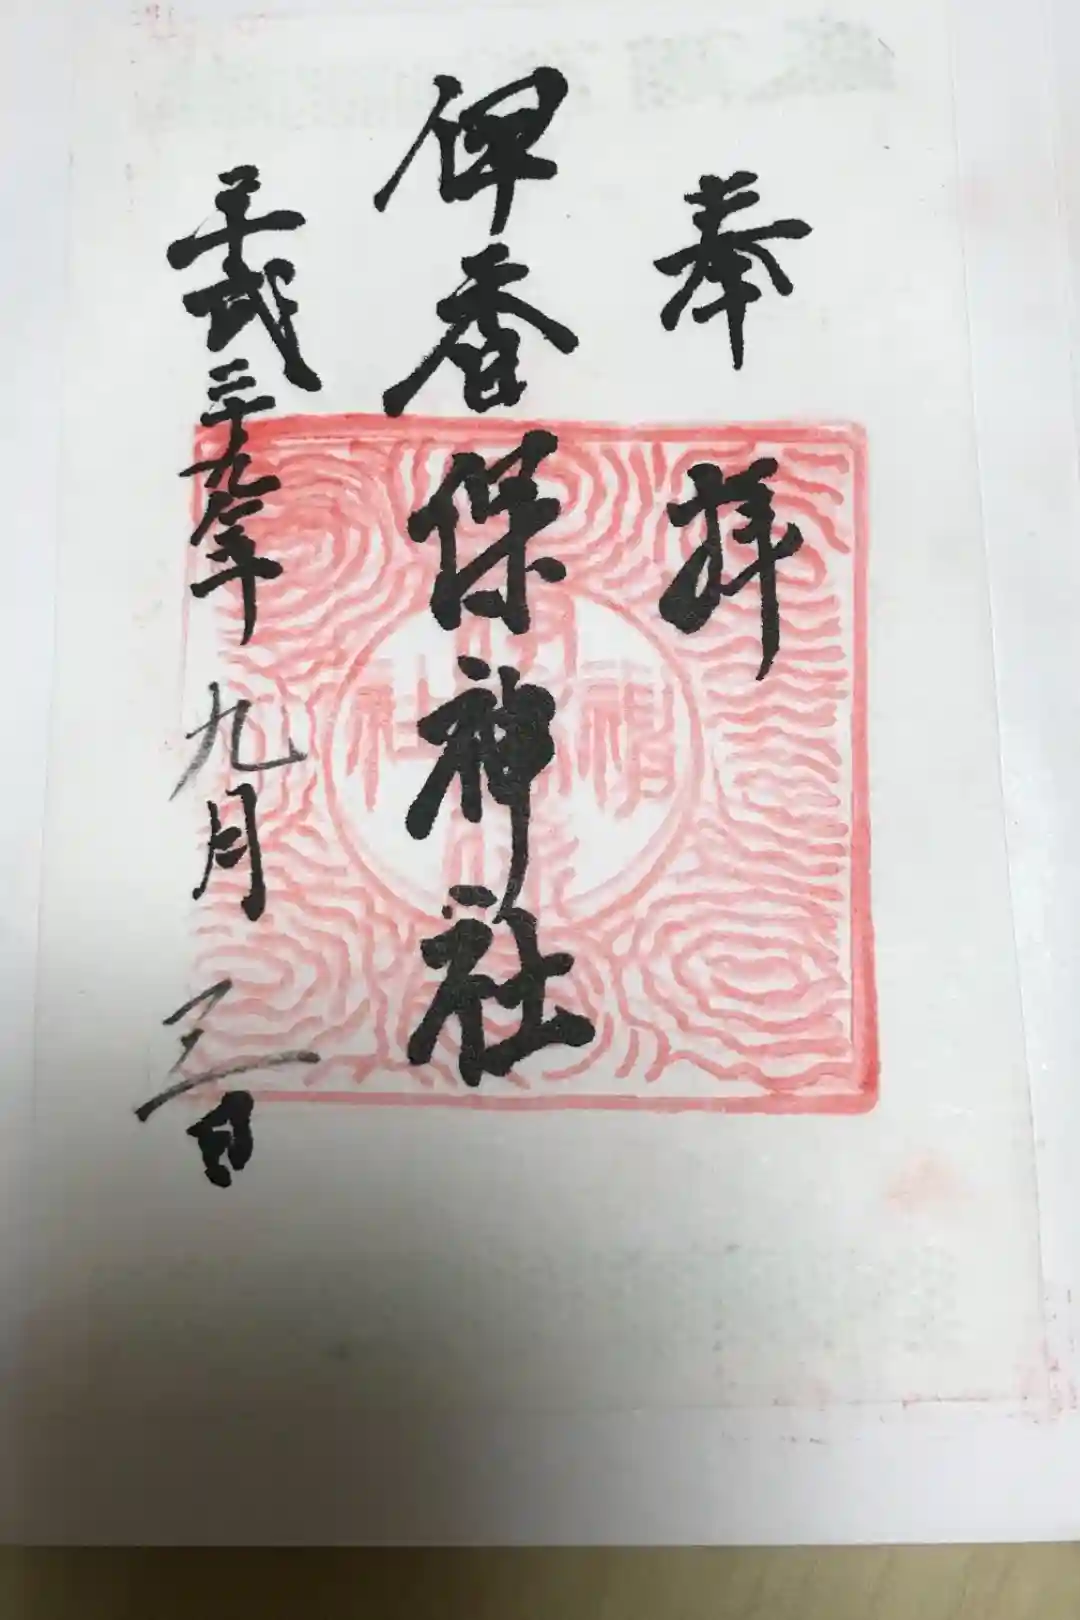 奉拝
伊香保神社
平成二十九年九月三日